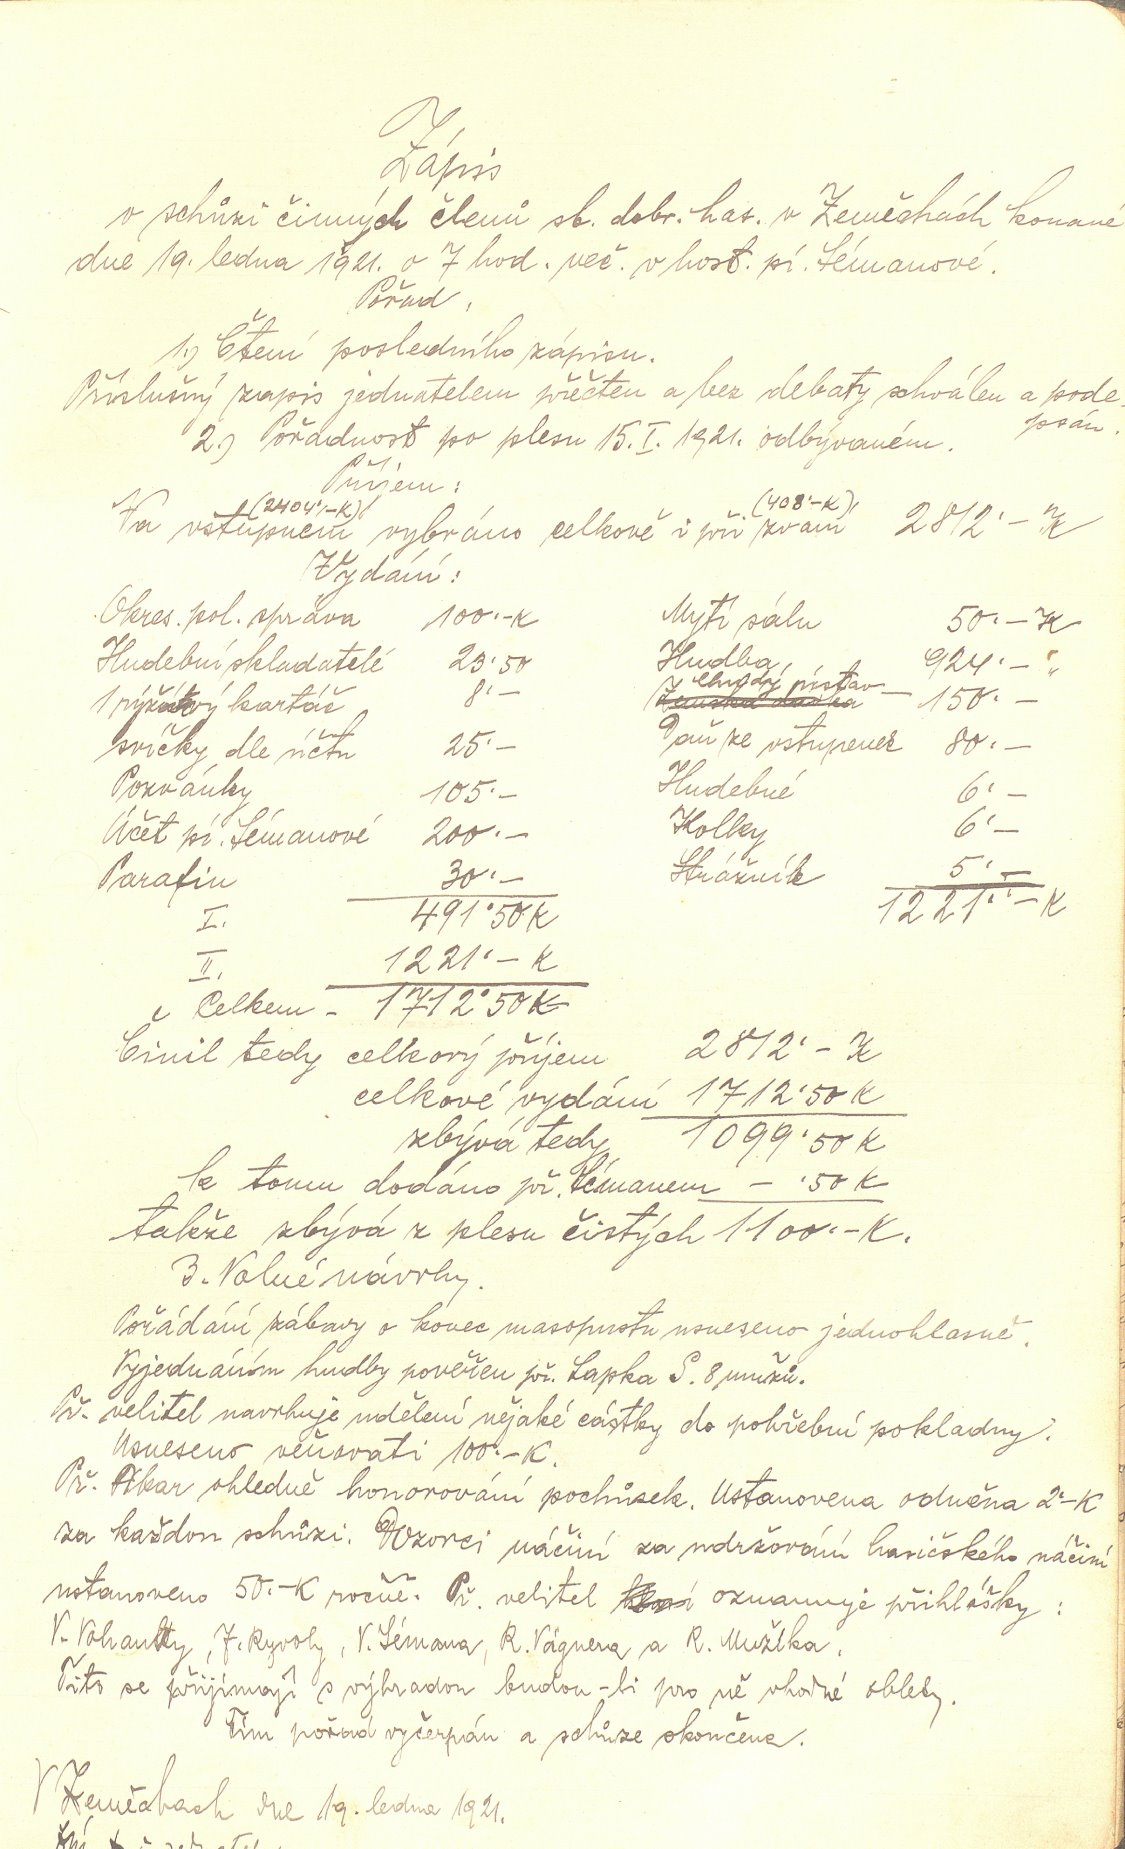 Zápis
o schůzi činných členů sb. dobr. has. v Zeměchách konané
dne 19. ledna 1921. o 7 hod. več. v host. pí. Sémanové.
Pořad.
1.) Čtení posledního zápisu.
Příslušný zapis jednatelem přečten a bez debaty schválen a pode-
psán.
2.) Pořadnost po plesu 15. I. 1921. odbývaném.
Příjem:
(2404·–K) (408·–K)
Na vstupném vybráno celkově i při zvaní 2812·– K
Vydání:
Okres. pol. správa 100·–K Mytí sálu 50·– K
Hudební skladatelé 23·50 Hudba 924·– „
1 rýžový kartáč 8·– Chudý přístav 150·–
svíčky dle účtu 25·– Daň ze vstupenek 80·–
Pozvánky 105·– Hudebné 6·–
Účet pí. Sémanové 200·– Kolky 6·–
Parafin 30·– Strážník 5·–
I. 491·50 K 1221·– K
II. 1221·– K
Celkem – 1712·50 K
Činil tedy celkový příjem 2812·– K
celkové vydání 1712·50 K
zbývá tedy 1099·50 K
k tomu dodáno př. Sémanem – ·50 K
takže zbývá z plesu čistých 1100·– K.
3. Volné návrhy.
Pořádání zábavy o konec masopustu usneseno jednohlasně.
Vyjednáním hudby pověřen př. Lapka S. 8 mužů.
Př. velitel navrhuje udělení nějaké částky do pohřební pokladny.
Usneseno věnovati 100·– K.
Př. ohledně honorování pochůzek. Ustanovena odměna 2·–K
za každou schůzi. Dozorci náčiní za udržování hasičského náčiní
ustanoveno 50·–K ročně. Př. velitel oznamuje přihlášky:
V. F. V. Sémana, R. Vágnera a R. Mužíka.
Tito se přijímají s výhradou budou-li pro ně vhodné obleky.
Tím pořad vyčerpán a schůze skončena.
V Zeměchach dne 19. ledna 1921.